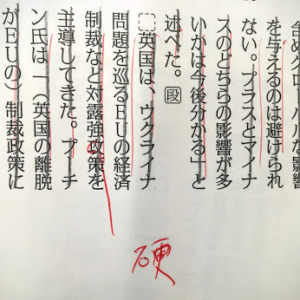 含めグローバルな影響
を与えるのは避けられ
ない。プラスとマイナ
スのどちらの影響が多
いかは今後分かる」と
述べた。段
英国は、ウクライナ
問題を巡るEUの経済
制裁など対露強政策を
主導してきた。プーチ
ン氏は「(英国の離脱
がEUの)制裁政策に
硬